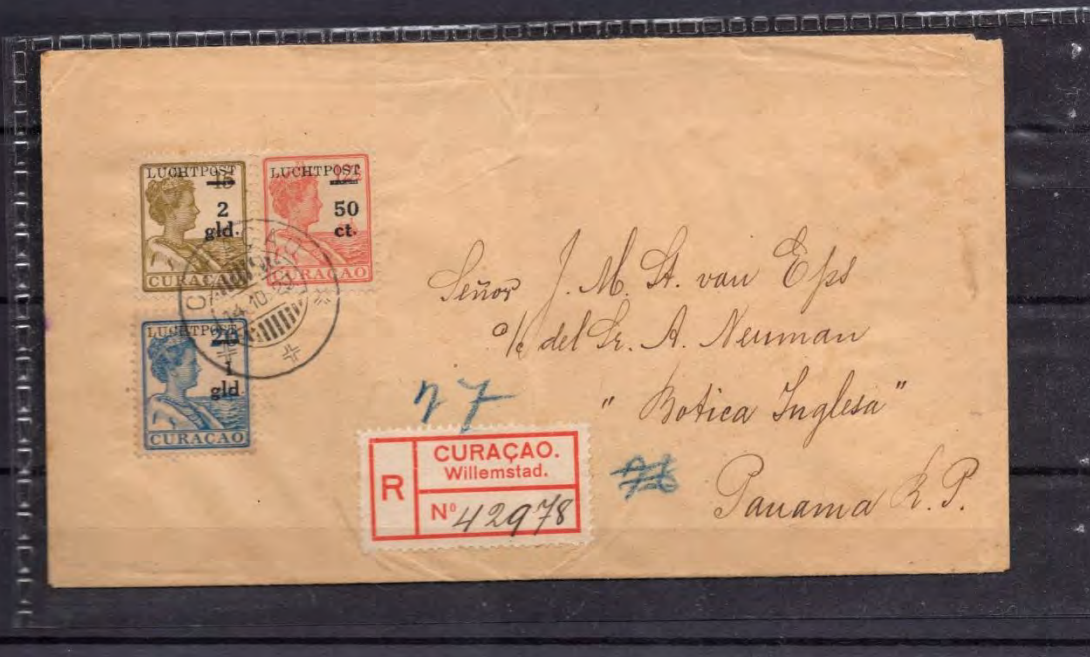 LUCHTPOST
15
2
gld.
CURAÇAO
LUCHTPOST
12½
50
ct.
CURAÇAO
LUCHTPOST
20
1
gld
CURAÇAO
Señor J. M. St. van Eps
c/o del Sr. A. Neuman
" Botica Inglesa "
Panama R. P.
77
R
CURAÇAO.
Willemstad.
Nº 42978